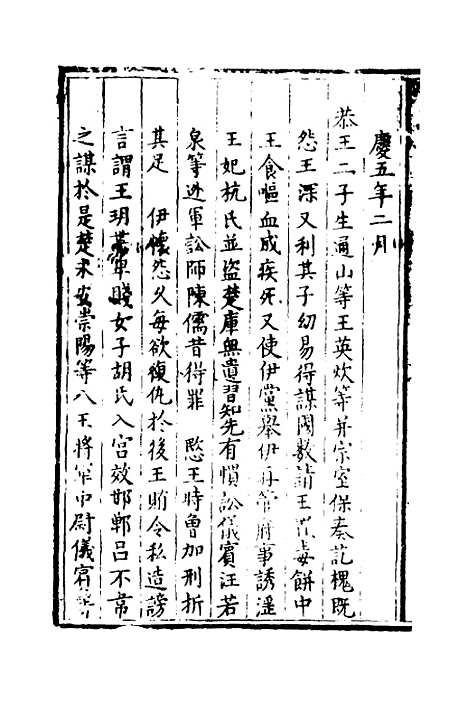 慶五年二月
恭王二子生通山等王英炊等并宗室保奏記槐既
怨王深又利其子幼易得謀國數請王置毒餅中
王食嘔血成疾死又使伊黨舉伊再管府事誘淫
王妃杭氏並盜楚庫無遺習知先有慣訟儀賓汪若
泉等迯軍訟師陳儒昔得罪 愍王時曾加刑折
其足 伊懷怨久每欲復仇於後王賄令私造謗
言謂王玥葢軍賤女子胡氏入宮效邯鄲呂不韋
之謀於是楚東安崇陽等八王將軍中尉儀賓